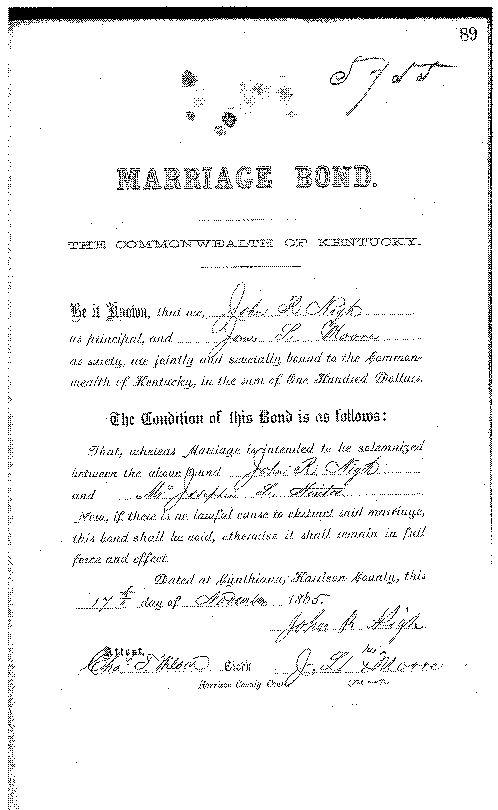 89
5755
MARRIAGE BOND.
THE COMMONWEALTH OF KENTUCKY.
Be it Known, that we, John R. Nigh
as principal, and L. Moore
as surety, are jointly and severally bound to the Common-
wealth of Kentucky, in the sum of One Hundred Dollars.
The Condition of this Bond is as follows:
That, whereas Marriage is intended to be solemnized
between the above bound John R. Nigh
and
Now, if there is no lawful cause to obstruct said marriage,
this bond shall be void, otherwise it shall remain in full
force and effect.
Dated at Cynthiana, Harrison County, this
17th day of November 1865.
John R Nigh
Attest,
Clerk J. his Moore
Harrison County Court